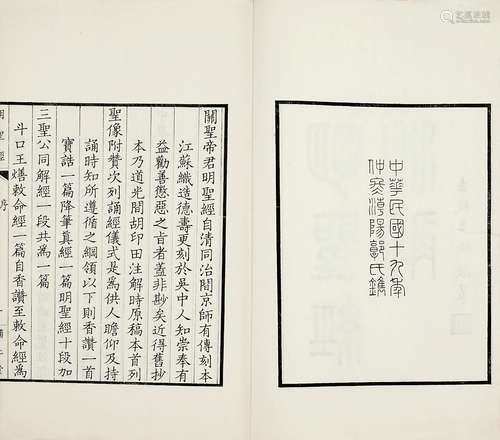 中華民國十九年
仲冬潮陽郭氏鐫
關聖帝君明聖經自清同治間京師有傳刻本
江蘇織造德壽更刻於吳中人知崇奉有
益勸善懲惡之旨者蓋非尠矣近得舊抄
本乃道光間胡印田注解時原稿本首列
聖像附贊次列誦經儀式是為供人瞻仰及持
誦時知所遵循之綱領以下則香讚一首
寶誥一篇降筆真經一篇明聖經十段加
三聖公同解經一段共為一篇
斗口王㷰敕命經一篇自香讚至敕命經為
明聖經 序 一 輔仁堂